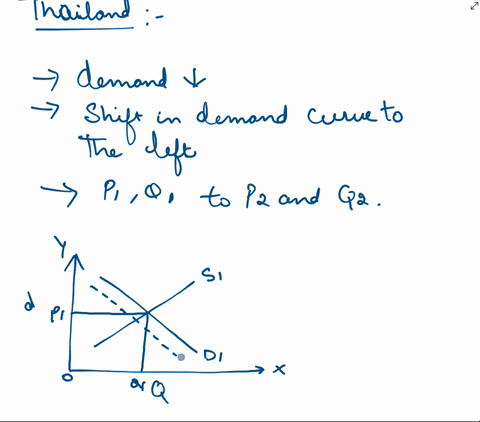 Thailand :-
→ demand ↓
→ Shift in demand curve to
the left
→ P1, Q1 to P2 and Q2.
Y
S1
d P1
D1
O Q X